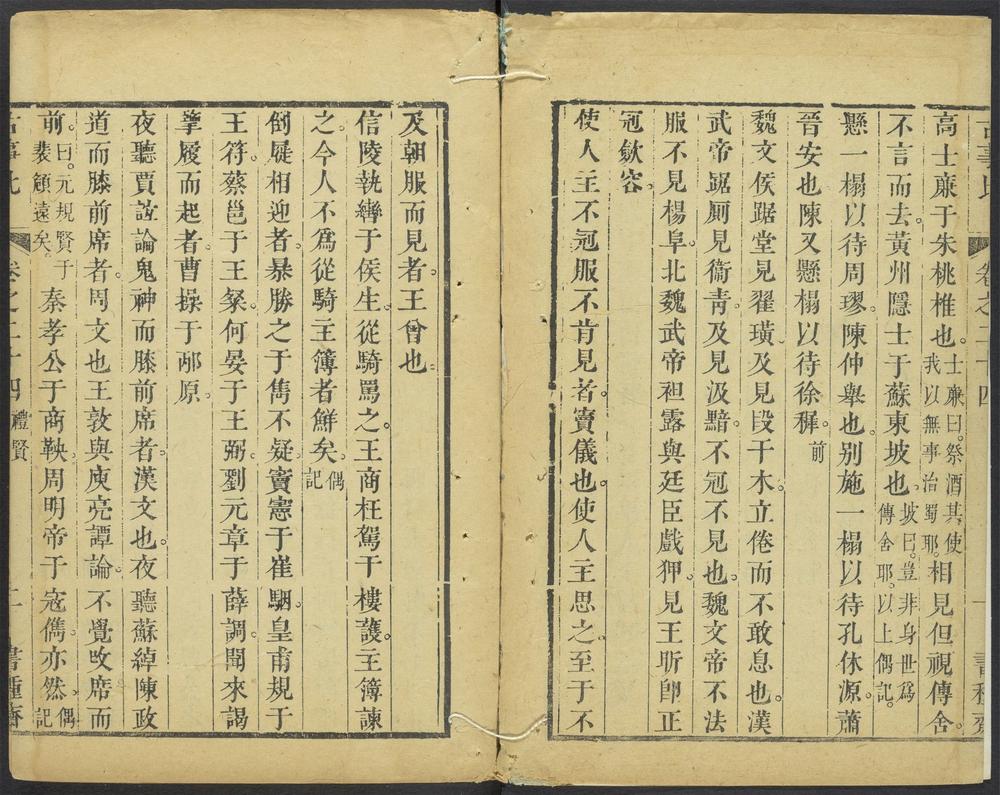 高士廉于朱桃椎也。士廉曰。祭酒其使我以無事治蜀耶。相見但視傳舍。
不言而去。黃州隱士于蘇東坡也。坡曰。豈非身世爲傳舍耶。以上偶記。
懸一榻以待周璆。陳仲舉也。別施一榻以待孔休源。蕭
晉安也。陳又懸榻以待徐穉。前
魏文侯踞堂見翟璜。及見段干木。立倦而不敢息也。漢
武帝踞厠見衞青。及見汲黯。不冠不見也。魏文帝不法
服不見楊阜。北魏武帝袒露與廷臣戲狎。見王昕卽正
冠斂容。
使人主不冠服不肯見者。竇儀也。使人主思之。至于不
及朝服而見者。王曾也。
信陵執轡于侯生。從騎罵之。王商枉駕于樓護。主簿諫
之。今人不爲從騎主簿者鮮矣。偶記
倒屣相迎者。暴勝之于雋不疑。竇憲于崔駰。皇甫規于
王符。蔡邕于王粲。何晏于王弼。劉元章于薛調。聞來謁
擥履而起者。曹操于邴原。
夜聽賈誼論鬼神而膝前席者。漢文也。夜聽蘇綽陳政
道而膝前席者。周文也。王敦與庾亮譚論。不覺攺席而
前。曰。元規賢于裴頠遠矣。秦孝公于商鞅。周明帝于寇儁。亦然。偶記
卷之二十四 禮賢 二 書種齋